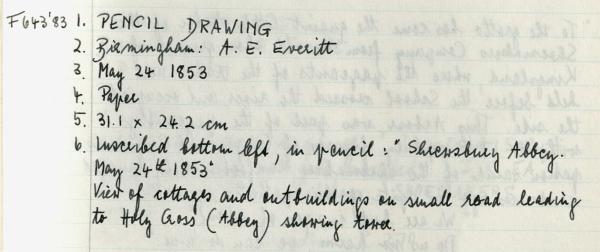 F643'83 1. PENCIL DRAWING
2. Birmingham: A. E. Everitt
3. May 24 1853
4. Paper
5. 31.1 x 24.2 cm
6. Inscribed bottom left, in pencil: "Shrewsbury Abbey.
May 24th 1853"
View of cottages and outbuildings on small road leading
to Holy Cross (Abbey) showing tower.